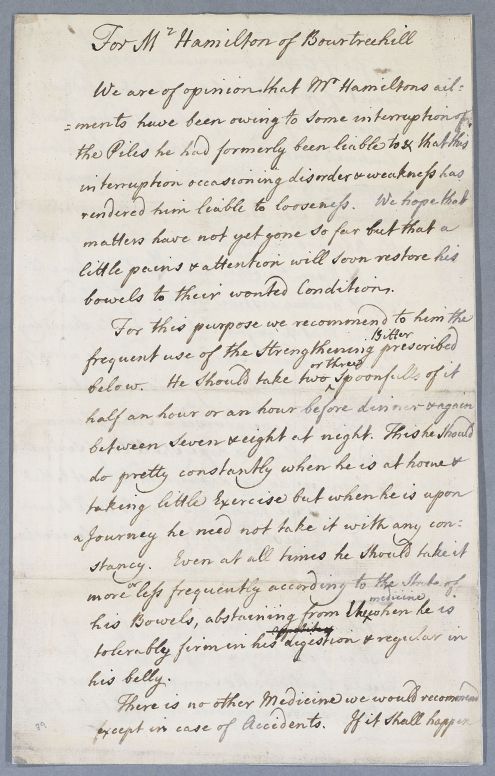 For Mr Hamilton of Bourtreehill
We are of opinion that Mr Hamiltons ail=
=ments have been owing to some interruption of
the Piles he had formerly been liable to & that this
interruption occasioning disorder & weakness has
rendered him liable to looseness. We hope that
matters have not yet gone so far but that a
little pains & attention will soon restore his
bowels to their wonted Condition.
For this purpose we recommend to him the
Bitter
frequent use of the strengthening prescribed
or three
below. He should take two spoonfulls of it
half an hour or an hour before dinner & again
between seven & eight at night. This he should
do pretty constantly when he is at home &
taking little Exercise but when he is upon
a Journey he need not take it with any con=
stancy. Even at all times he should take it
more or less frequently according to the State of
medicine
his Bowels, abstaining from the when he is
tolerably firm in his digestion & regular in
his belly.
There is no other Medicine we would recommend
except in case of Accidents. If it shall happen
39